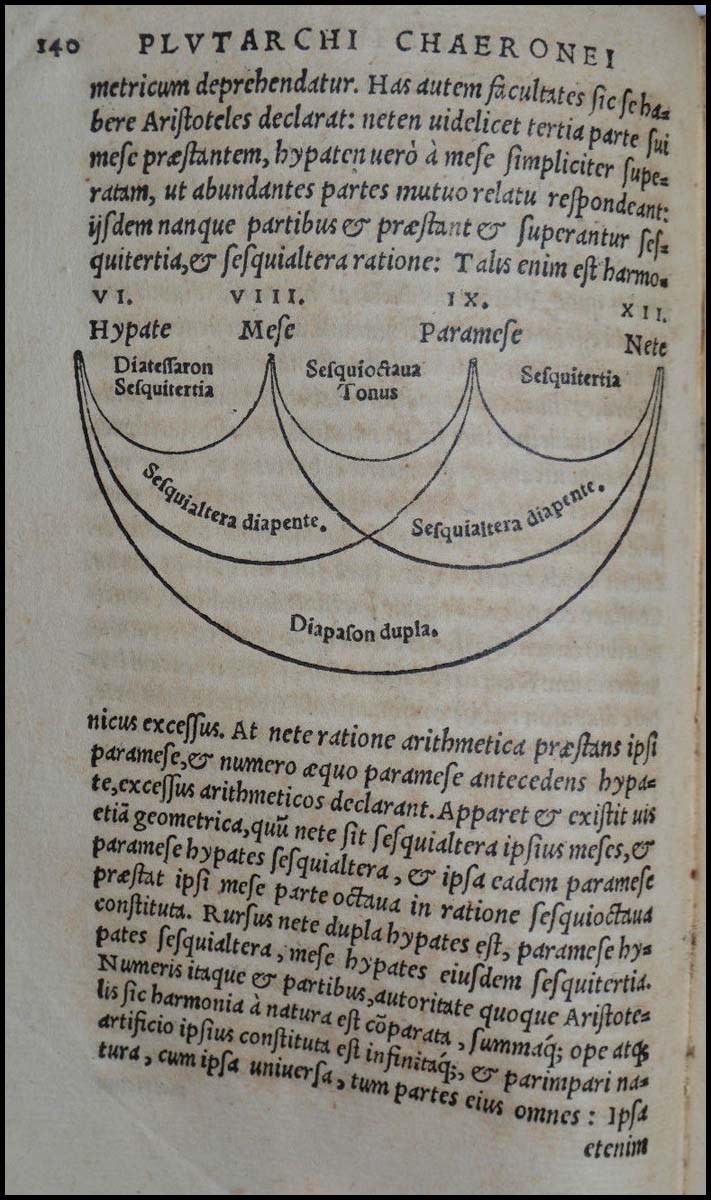 140 PLVTARCHI CHAERONEI
metricum deprehendatur. Has autem facultates sic se ha-
bere Aristoteles declarat: neten uidelicet tertia parte sui
mese præstantem, hypaten uerò à mese simpliciter supe-
ratam, ut abundantes partes mutuo relatu respondeant:
ijsdem nanque partibus & præstant & superantur ses-
quitertia, & sesquialtera ratione: Talis enim est harmo-
VI. VIII. IX. XII.
Hypate Mese Paramese Nete
Diatessaron Sesquioctaua Sesquitertia
Sesquitertia Tonus
Sesquialtera diapente. Sesquialtera diapente.
Diapason dupla.
nicus excessus. At nete ratione arithmetica præstans ipsi
paramese, & numero æquo paramese antecedens hypa-
te, excessus arithmeticos declarant. Apparet & existit uis
etiã geometrica, quũ nete sit sesquialtera ipsius meses, &
paramese hypates sesquialtera, & ipsa eadem paramese
præstat ipsi mese parte octaua in ratione sesquioctaua
constituta. Rursus nete dupla hypates est, paramese hy-
pates sesquialtera, mese hypates eiusdem sesquitertia.
Numeris itaque & partibus, autoritate quoque Aristote-
lis sic harmonia à natura est cõparata, summaq́; ope atq;
artificio ipsius constituta est infinitaq́;, & parimpari na-
tura, cum ipsa uniuersa, tum partes eius omnes: Ipsa
etenim